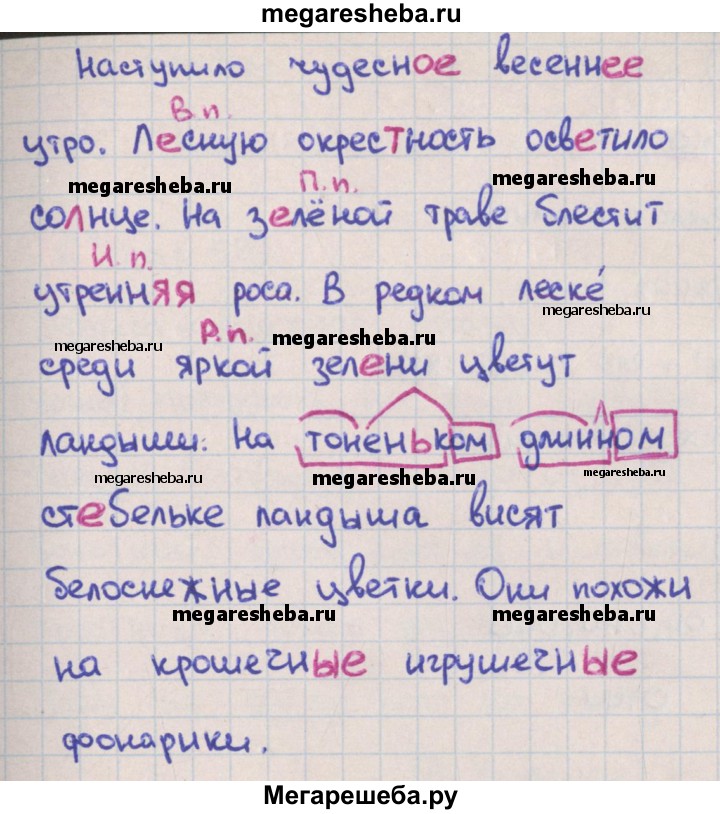 megaresheba.ru
Наступило чудесное весеннее
В.п.
утро. Лесную окрестность осветило
megaresheba.ru П.п. megaresheba.ru
солнце. На зелёной траве блестит
И.п.
утренняя роса. В редком леске́
megaresheba.ru Р.п. megaresheba.ru megaresheba.ru
среди яркой зелени цветут
ландыши. На тоненьком длинном
megaresheba.ru megaresheba.ru megaresheba.ru
стебельке ландыша висят
белоснежные цветки. Они похожи
megaresheba.ru megaresheba.ru
на крошечные игрушечные
фонарики.
Мегарешеба.ру